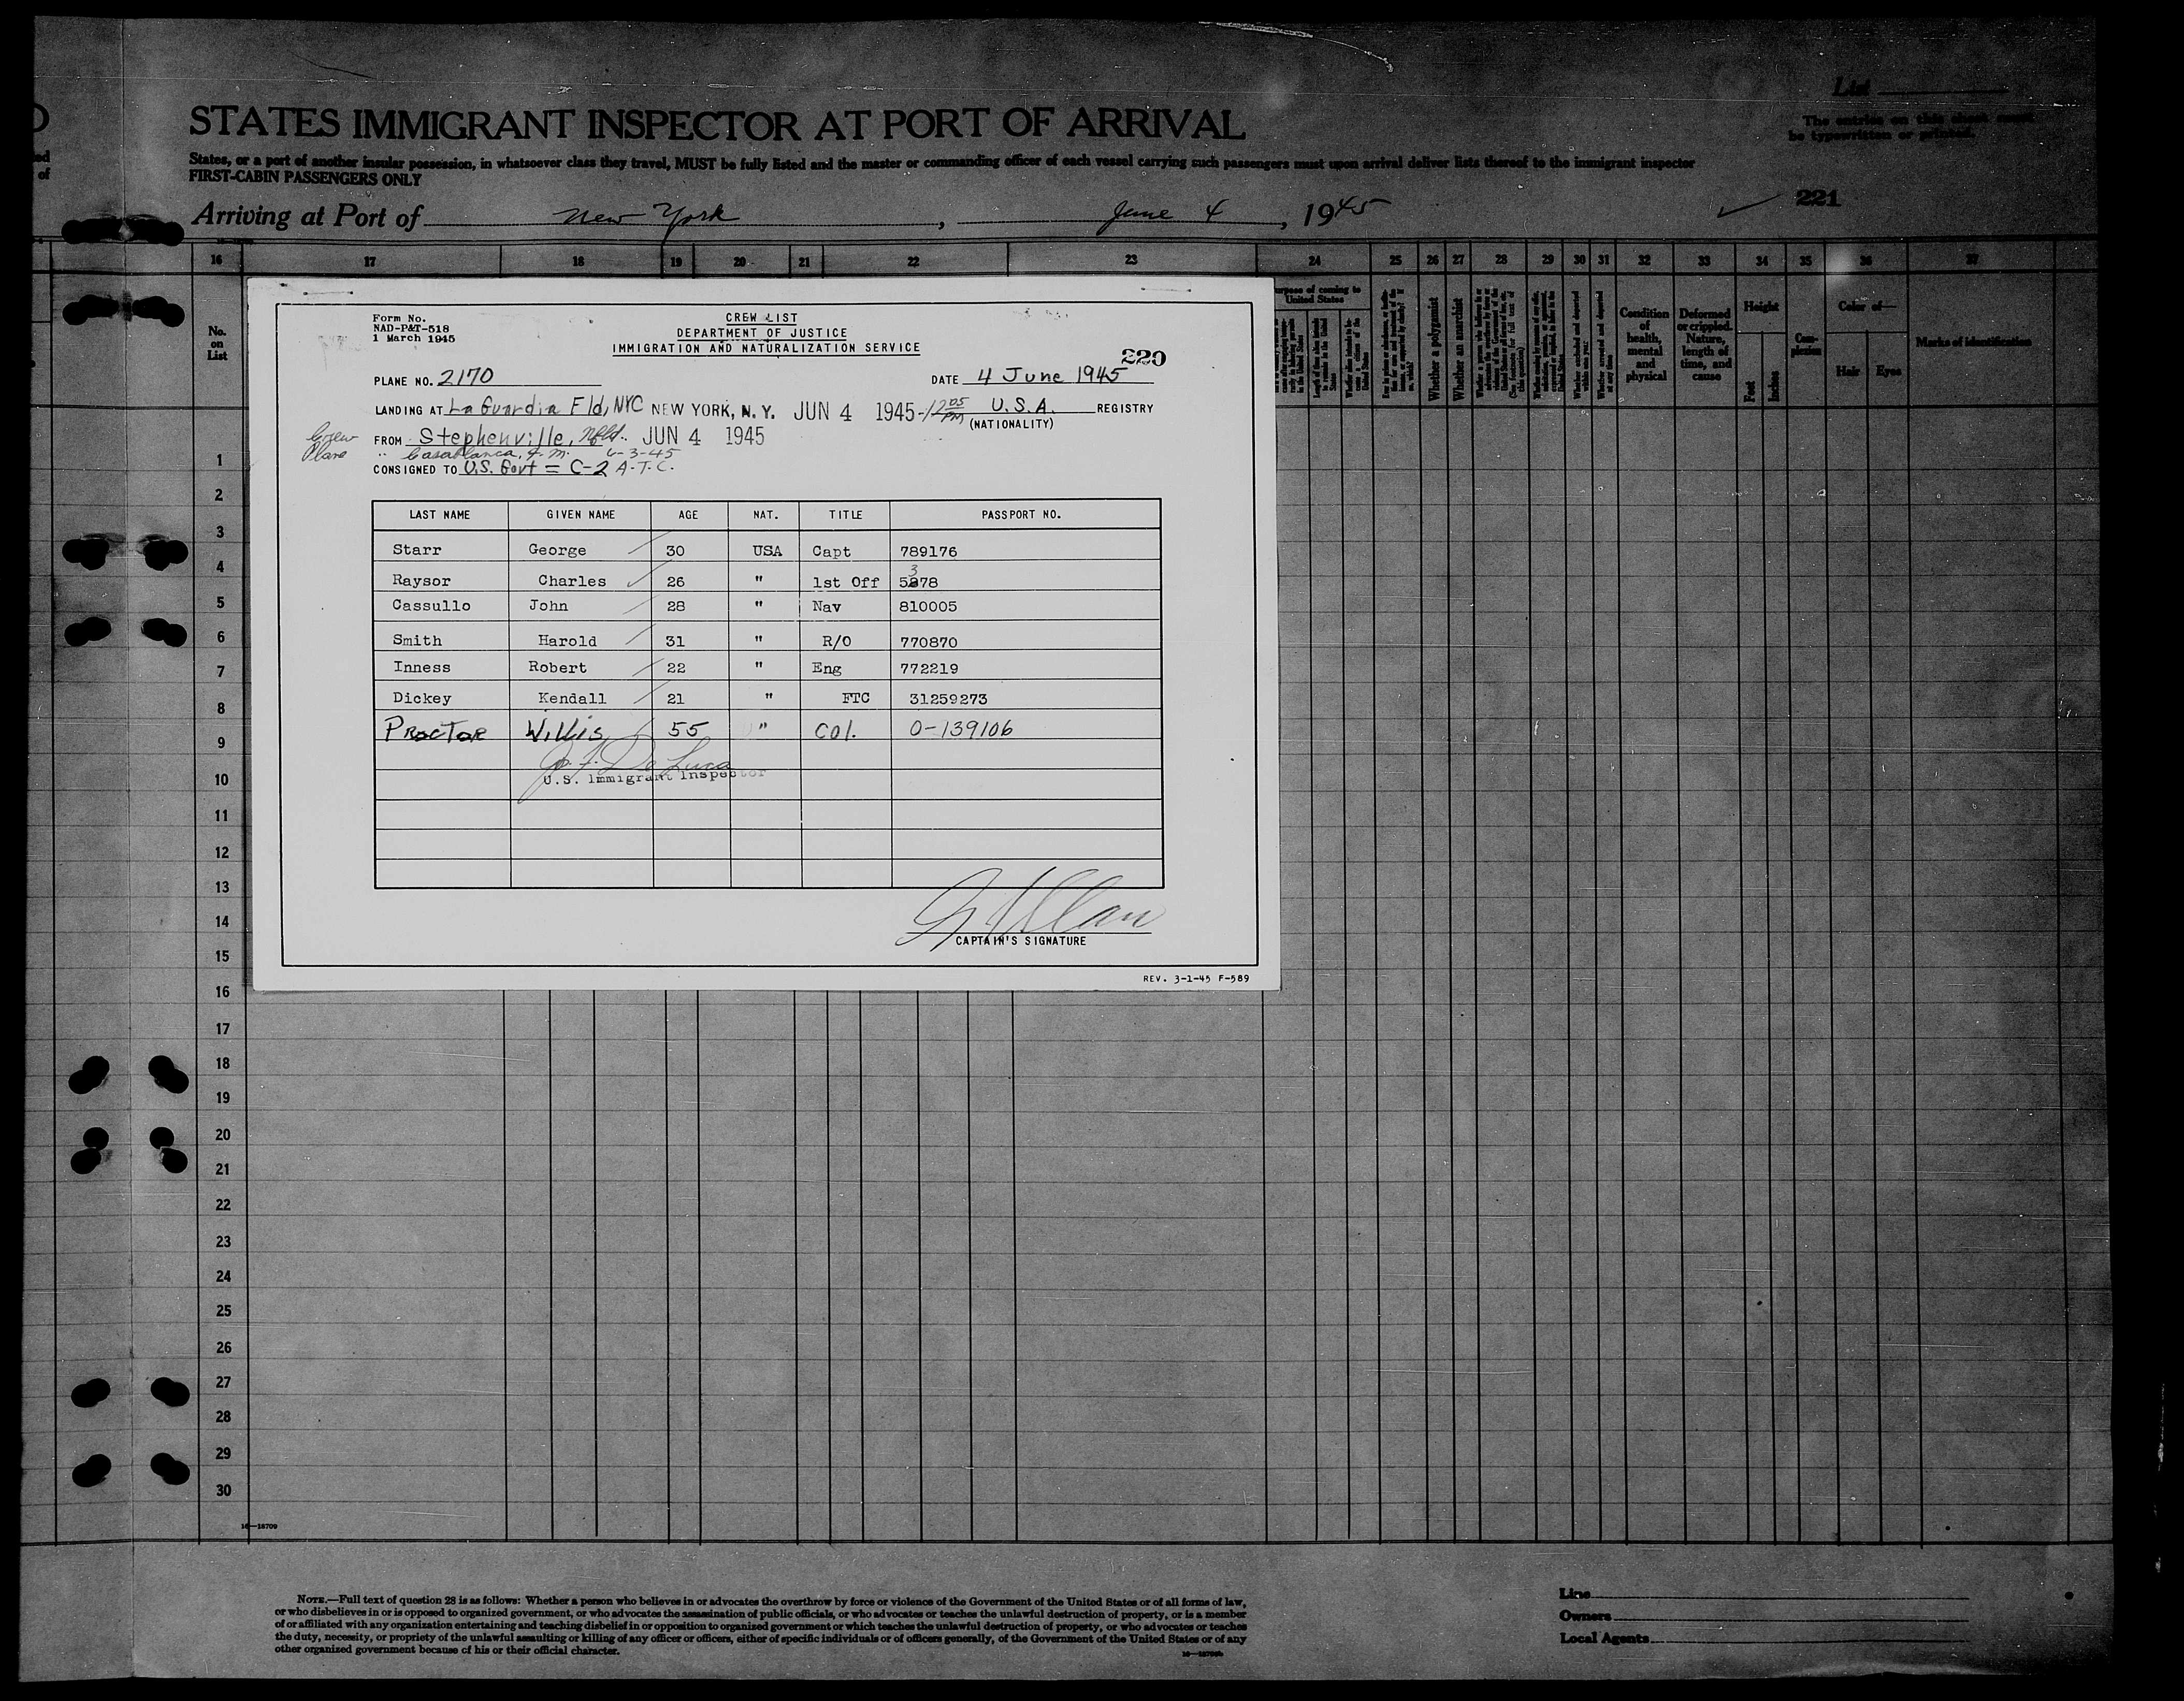 List
The entries on this sheet must
be typewritten or printed.
STATES IMMIGRANT INSPECTOR AT PORT OF ARRIVAL
States, or a port of another insular possession, in whatsoever class they travel, MUST be fully listed and the master or commanding officer of each vessel carrying such passengers must upon arrival deliver lists thereof to the immigrant inspector
FIRST-CABIN PASSENGERS ONLY
221
Arriving at Port of New York, June 4, 1945
16 17 18 19 20 21 22 23 24 25 26 27 28 29 30 31 32 33 34 35 36 37
No. on List
Purpose of coming to United States
Whether a polygamist
Whether an anarchist
Condition of health, mental and physical
Deformed or crippled. Nature, length of time, and cause
Height
Feet
Inches
Complexion
Color of—
Hair
Eyes
Marks of identification
Form No.
NAD-P&T-518
1 March 1945
CREW LIST
DEPARTMENT OF JUSTICE
IMMIGRATION AND NATURALIZATION SERVICE
220
PLANE NO. 2170 DATE 4 June 1945
LANDING AT La Guardia Fld, NYC NEW YORK, N. Y. JUN 4 1945 - 12 05 PM U.S.A. REGISTRY
(NATIONALITY)
Crew FROM Stephenville, Nfld. JUN 4 1945
Plane " Casablanca, F. M. 6-3-45
CONSIGNED TO U.S. Govt = C-2 A.T.C.
LAST NAME GIVEN NAME AGE NAT. TITLE PASSPORT NO.
Starr George 30 USA Capt 789176
Raysor Charles 26 " 1st Off 5378
Cassullo John 28 " Nav 810005
Smith Harold 31 " R/O 770870
Inness Robert 22 " Eng 772219
Dickey Kendall 21 " FTC 31259273
Proctor Willis 55 " Col. O-139106
Jo. F. De Luca
U.S. Immigrant Inspector
CAPTAIN'S SIGNATURE
REV. 3-1-45 F-589
1
2
3
4
5
6
7
8
9
10
11
12
13
14
15
16
17
18
19
20
21
22
23
24
25
26
27
28
29
30
16—18709
NOTE.—Full text of question 28 is as follows: Whether a person who believes in or advocates the overthrow by force or violence of the Government of the United States or of all forms of law,
or who disbelieves in or is opposed to organized government, or who advocates the assassination of public officials, or who advocates or teaches the unlawful destruction of property, or is a member
of or affiliated with any organization entertaining and teaching disbelief in or opposition to organized government or which teaches the unlawful destruction of property, or who advocates or teaches
the duty, necessity, or propriety of the unlawful assaulting or killing of any officer or officers, either of specific individuals or of officers generally, of the Government of the United States or of any
other organized government because of his or their official character.
Line
Owners
Local Agents